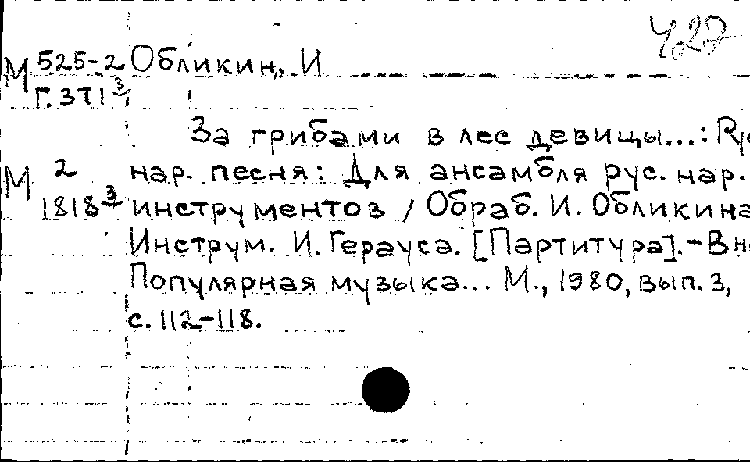 427
М 525-2 Обликин, И
Г.371 3
За грибами в лес девицы...: Ру
М 2 нар. песня: Для ансамбля рус. нар.
1818 3 инструментов / Обраб. И. Обликина
Инструм. И. Герауса. [Партитура].-В н
Популярная музыка... М., 1980, вып. 3,
с. 112-118.